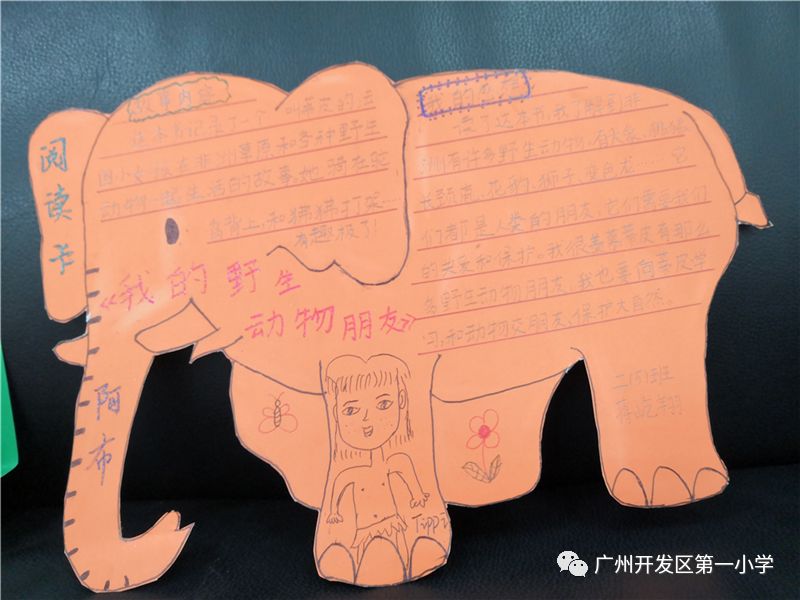 阅读卡
故事内容
这本书记录了一个叫蒂皮的法
国小女孩在非洲草原和各种野生
动物一起生活的故事。她骑在鸵
鸟背上,和狒狒打架……
有趣极了!
《我的野生
动物朋友》
阿布
我的感
读了这本书,我了解到非
洲有许多野生动物,有大象、狒狒
长颈鹿、花豹、狮子、变色龙……它
们都是人类的朋友,它们需要我们
的关爱和保护。我很羡慕蒂皮有那么
多野生动物朋友,我也要向蒂皮学
习,和动物交朋友、保护大自然。
二(5)班
蒋屹翔
Tippi
广州开发区第一小学